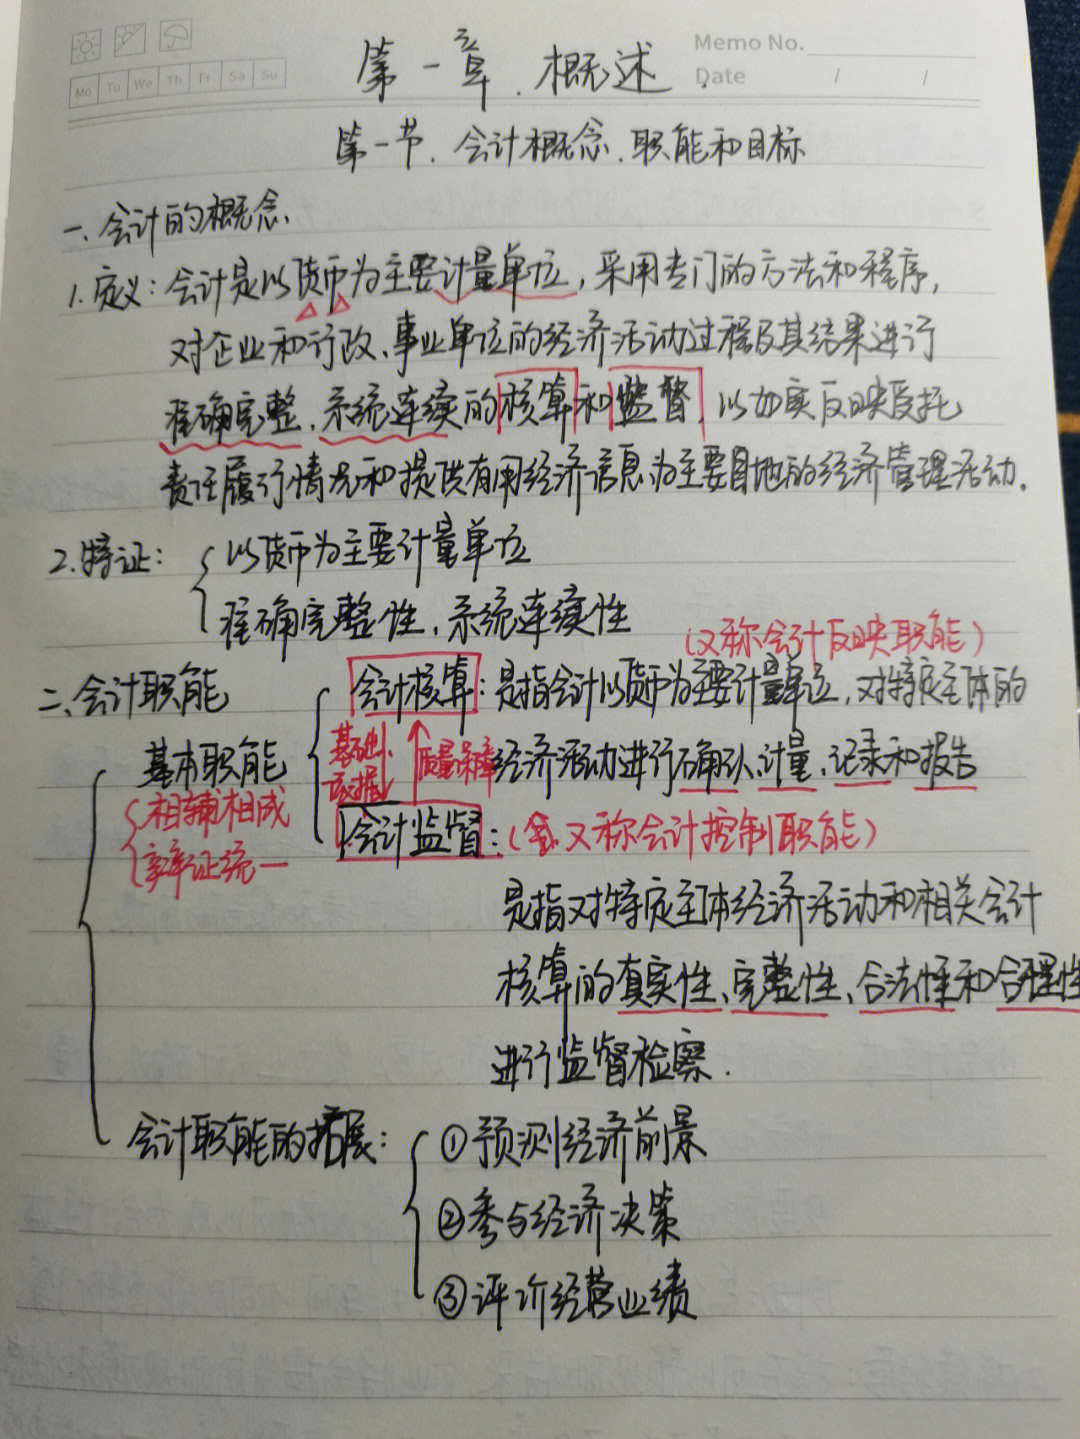 Memo No.
Mo Tu We Th Fr Sa Su
Date / /
第一章.概述
第一节.会计概念.职能和目标
一.会计的概念.
1.定义:会计是以货币为主要计量单位,采用专门的方法和程序,
对企业和行政、事业单位的经济活动过程及其结果进行
准确完整、系统连续的核算和监督,以如实反映受托
责任履行情况和提供有用经济信息为主要目地的经济管理活动.
2.特证:
以货币为主要计量单位
准确完整性、系统连续性
(又称会计反映职能)
二、会计职能
会计核算:是指会计以货币为主要计量单位,对特定主体的
基本职能
基础、
依据
质量保障
经济活动进行确认、计量、记录和报告
相辅相成
辩证统一
会计监督:(又称会计控制职能)
是指对特定主体经济活动和相关会计
核算的真实性、完整性、合法性和合理性
进行监督检察.
会计职能的拓展:
①预测经济前景
②参与经济决策
③评价经营业绩